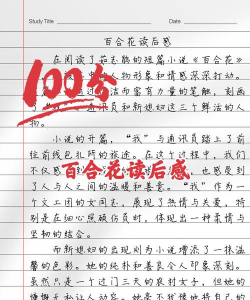 Study Title
Date
百合花读后感
在阅读了茹志鹃的短篇小说《百合花》
中的人物形象和情感深深打动。
洁而富有力量的笔触,刻画
了"我"、通讯员和新媳妇这三个鲜活的人
物。
100分
小说的开篇,"我"与通讯员踏上了前
往前线包扎所的旅途。在这个过程中,我们
不仅感
,也感受到
百合花读后感
了人与人之间的温暖和善意。"我"作为一
个文工团的女同志,展现了热情与关爱,特
别是在细心照顾伤员时,体现出一种柔情与
坚韧的结合。
而新媳妇的出现则为小说增添了一抹温
馨的色彩。她的纯朴和善良令人印象深刻。
虽然只是一个过门三天的农村女子,但她的
慷慨
私让人动容。她毫不犹豫地将自己